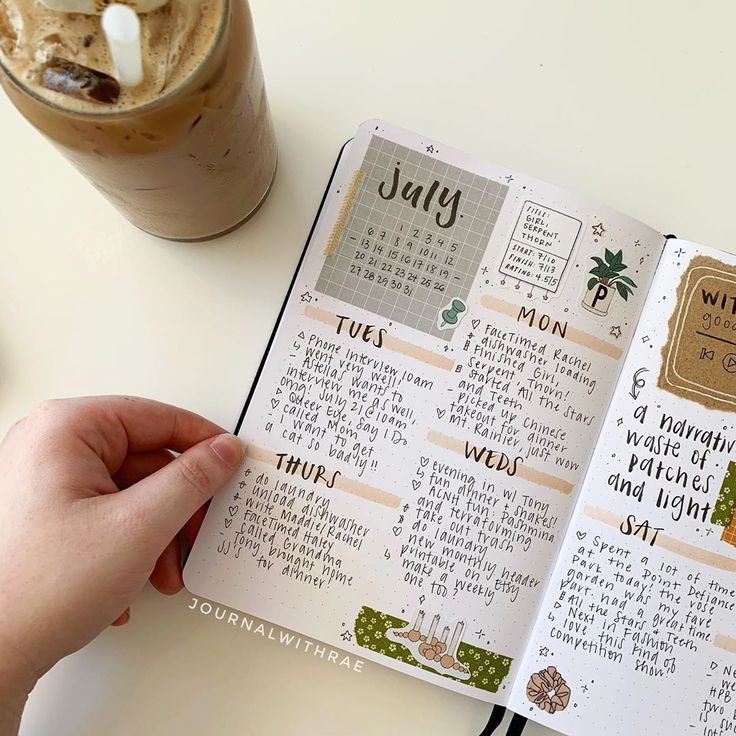 july.
1 2 3 4 5
6 7 8 9 10 11 12
- 13 14 15 16 17 18 19 -
20 21 22 23 24 25 26
27 28 29 30 31
TITLE:
GIRL,
SERPENT
THORN
START: 7/10
FINISH: 7/13
RATING: 4.5/5
P
MON
FaceTimed Rachel
dishwasher loading
Finished Girl,
Serpent, Thorn!
Started All the Stars
and Teeth
picked up Chinese
takeout for dinner
Mt. Rainier just wow
TUES
Phone interview 10am
↳ went very well!
- Astellas wants to
interview me as well,
omg! July 21 @ 10am
Queer Eye, Say I Do
called Mom
I want to get
a cat so badly!!
WEDS
evening w/ Tony
↳ fun dinner + shakes!
ACNH fun: Pashmina
and terraforming
take out trash
do laundry
new monthly header
printable on Etsy
↳ make a weekly
one too?
THURS
do laundry
unload dishwasher
write Maddie/Rachel
FaceTimed Haley
called Grandma
- Tony brought home
JJ's for dinner!
JOURNALWITHRAE
WIT
good
a narrativ
waste of
patches
and light
SAT
Spent a lot of time
at the Point Defiance
Park today! the rose
garden was my fave
part had a great time.
All the Stars & Teeth
Next in Fashion
↳ love this kind of
competition show!
Ne
we
HPB
two b
is su